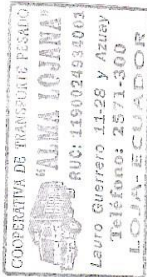 COOPERATIVA DE TRANSPORTE PESADO
"ALMA LOJANA"
RUC: 1190024934001
Lauro Guerrero 11-28 y Azuay
Teléfono: 2571300
LOJA-ECUADOR